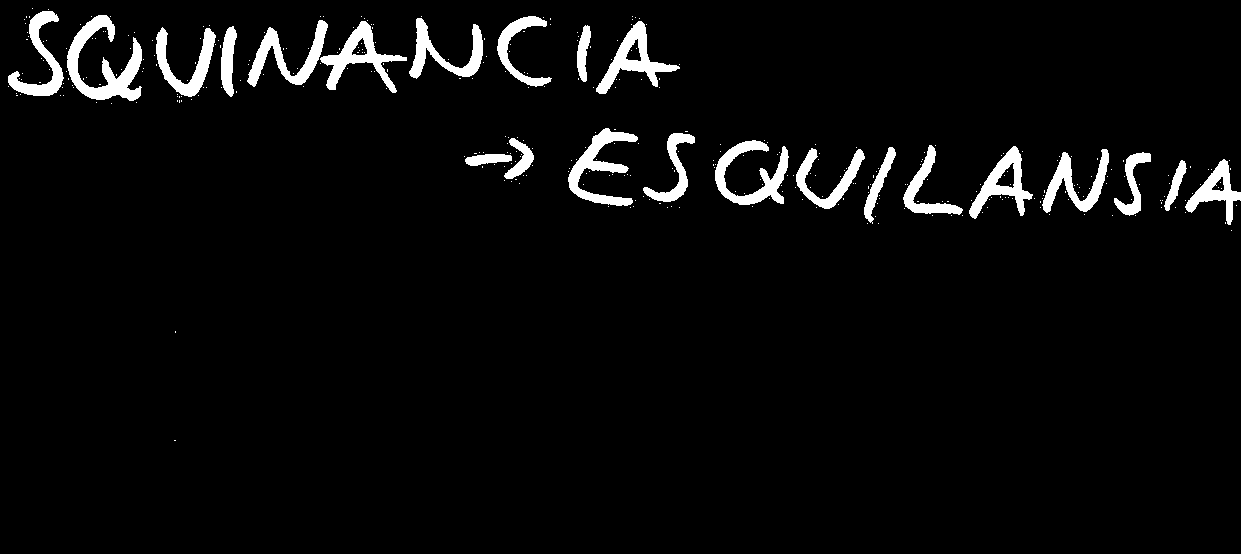 SQUINANCIA
→ ESQUILANSIA